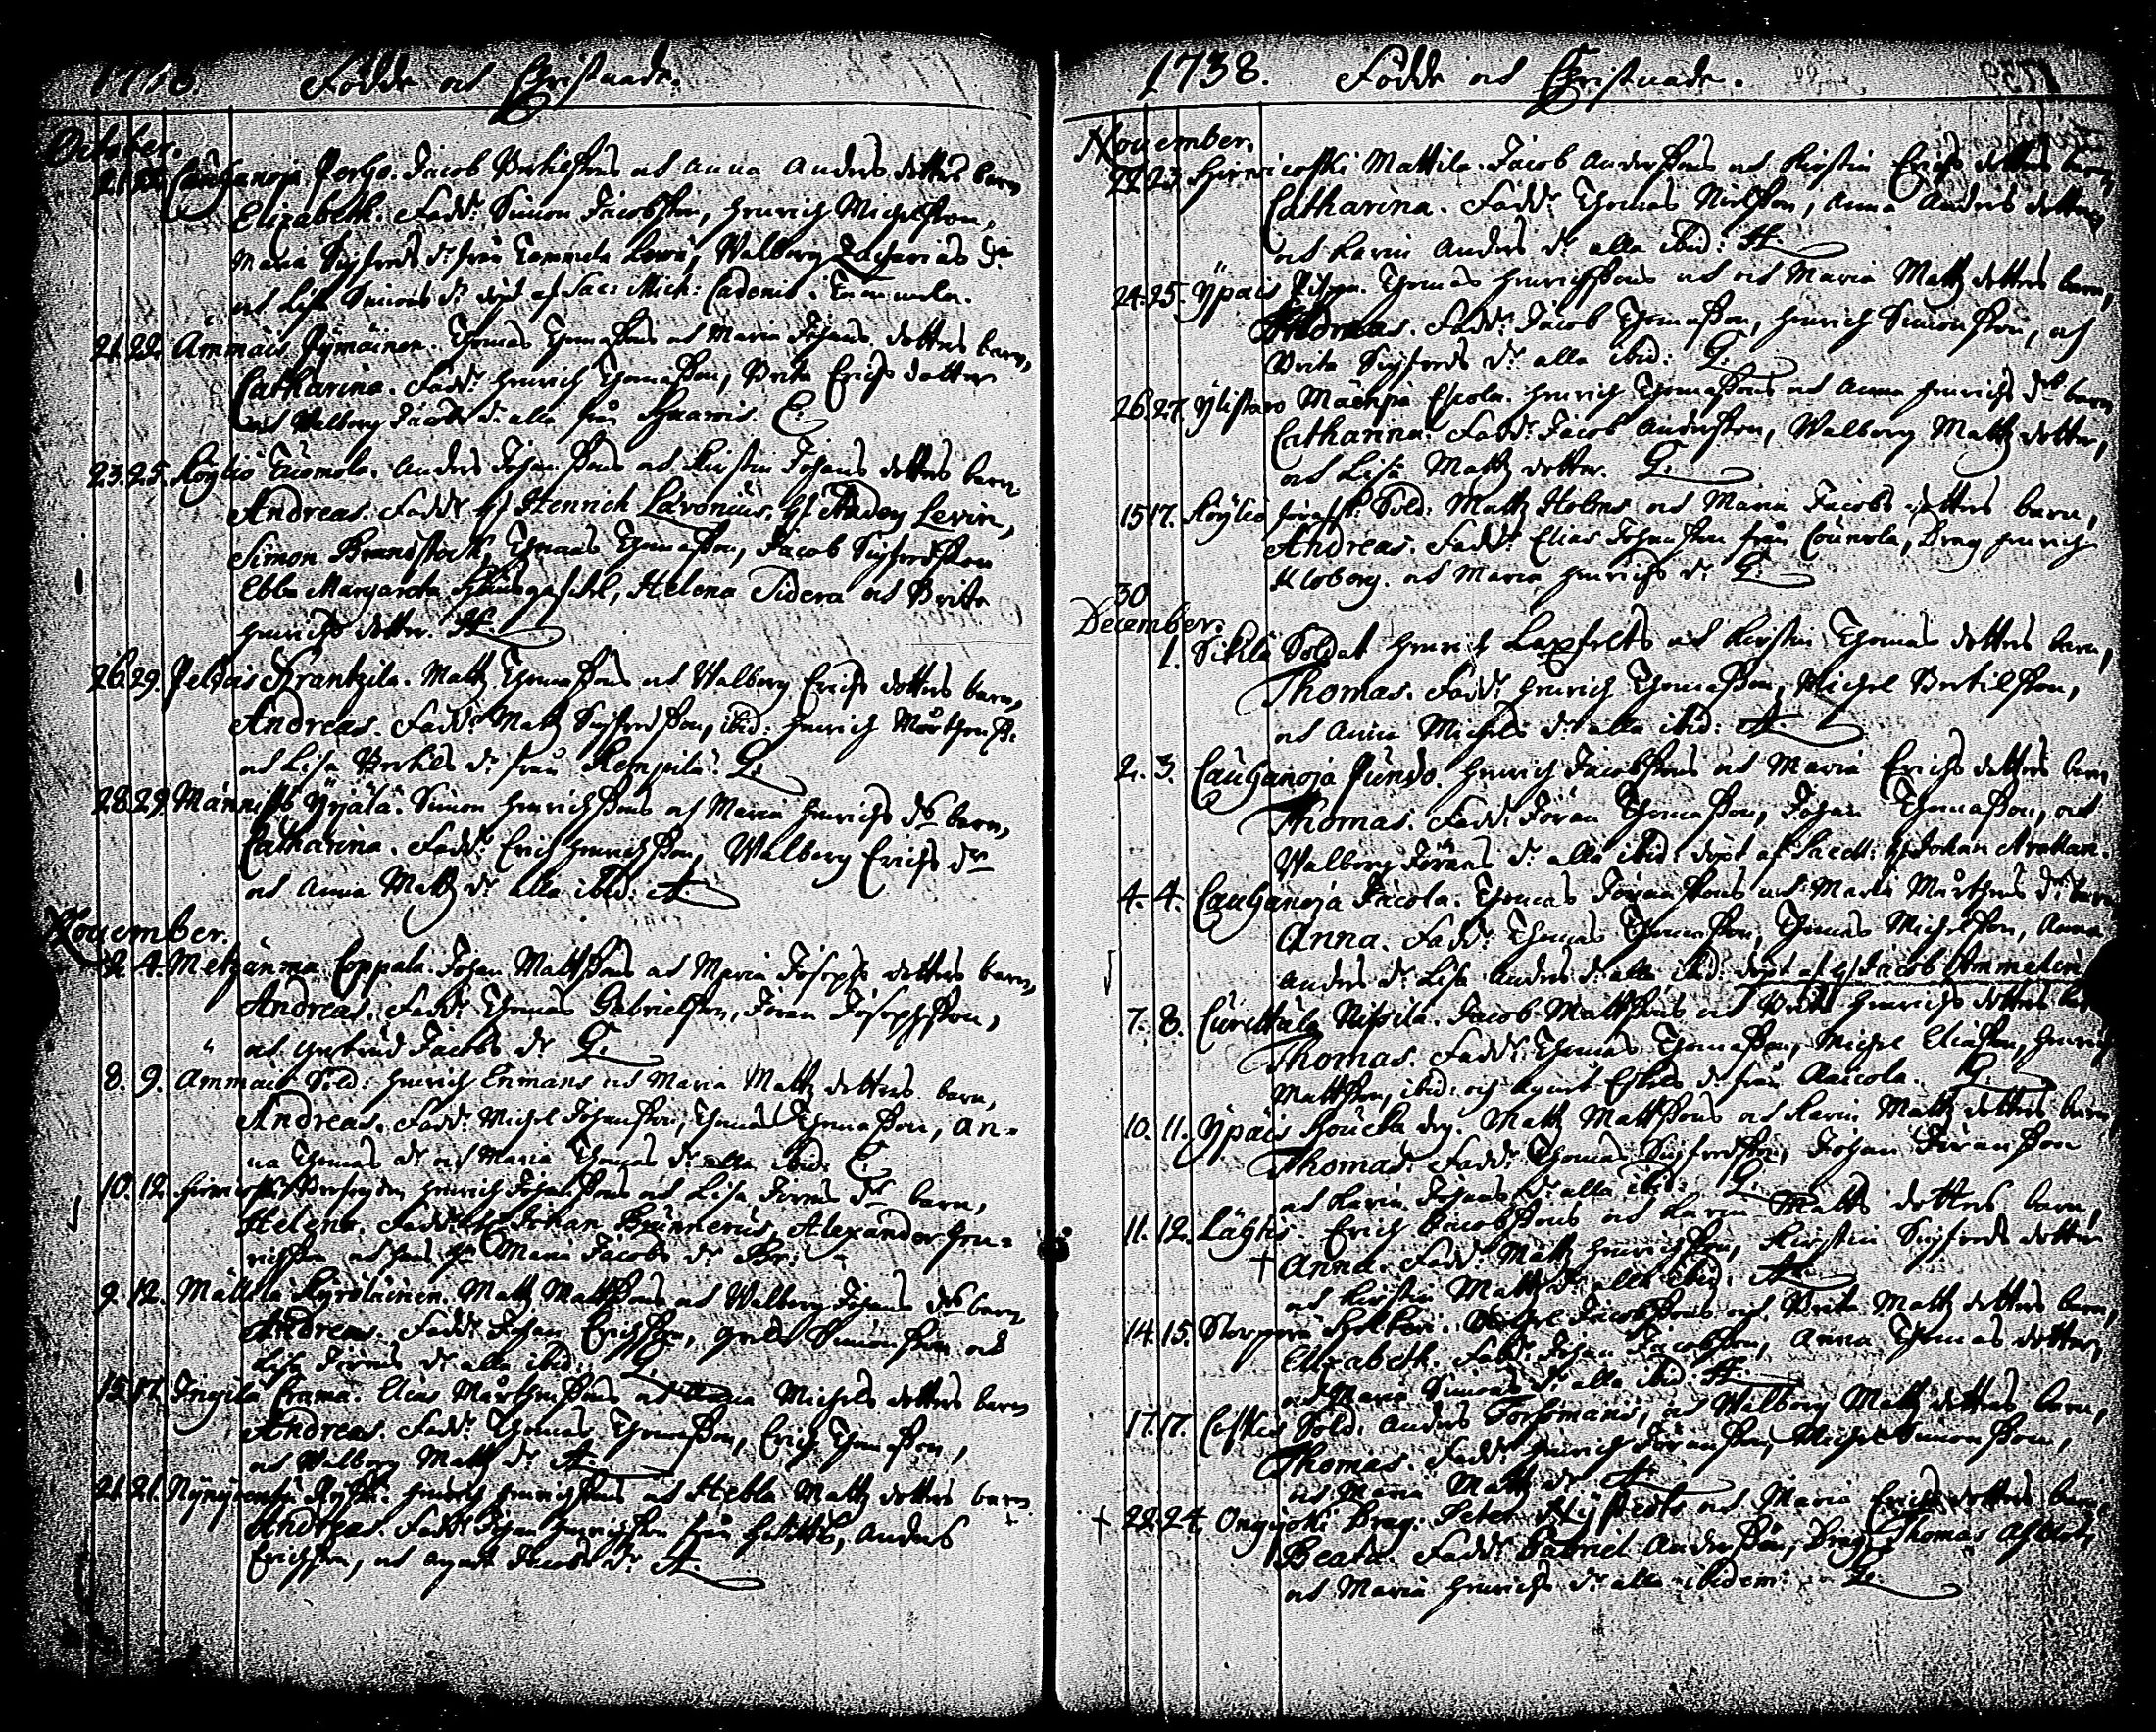 Födde och Christnade.
October.
21. 22. Cauhanoja Perho. Jacob Bertilssons och Anna Anders dotters barn
Elizabeth. Fadd: Simon Jacobsson, Henrich Michelsson,
Maria Sigfreds dr från Tammela Lewä, Walborg Zacharias dr
och Lisa Simons dr döpt af Sac: Mich: Cadenio. Tammela.
21. 22. Ammäis Thomas Thomassons och Maria Johans dotters barn,
Catharina. Fadd: Henrich Thomasson, Brita Erichs dotter
och Walborg Jacobs dr alla från C:
23. 25. Köyliö Tuomola. Anders Johanssons och Kirstin Johans dotters barn
Andreas. Fadd: H Henrich Lavonius, H Levin,
Simon Brandstack, Thomas Thomasson, Jacob Sigfredsson
Ebba Margareta Helena Sidera och Brita
Henrichs dotter. A.
26. 29. Peldois Frantzila. Matts Thomassons och Walborg Erichs dotters barn,
Andreas. Fadd: Matts Sigfredsson, ibid: Henrich Mårthenss:
och Lisa Bertils dr från Kempilä. G.
28. 29. Mannisto Yrjälä. Simon Henrichssons och Maria Henrichs drs barn,
Catharina. Fadd: Erich Henrichsson, Walborg Erichs dr
och Anna Matts dr alla ibid: A
November.
2. 4. Metzänma Coppala. Johan Mattssons och Maria Josephs dotters barn,
Andreas. Fadd: Thomas Gabrielsson, Jöran Josephsson,
och Gertrud Jacobs dr G.
8. 9. Ammäis Sold: Henrich Enmans och Maria Matts dotters barn,
Andreas. Fadd: Michel Johansson, Thomas Thomasson, An-
na Thomas dr och Maria Thomas dr alla ibid: C.
10. 12. Henrich Johanssons och Lisa Jörens drs barn,
Helena. Fadd: Johan Brunnerus, Alexander Hen-
richsson och Maria Jacobs dr
9. 12. Mällölä Kyröläinen. Matts Mattssons och Walborg Johans drs barn
Andreas. Fadd: Johan Erichsson, Simonsson och
Lisa Jörens dr alla ibid: G
15. 17. Jngilä Crama. Elias Mårthenssons och Michels dotters barn
Andreas. Fadd: Thomas Thomasson, Erich Thomasson,
och Walborg Matts dr A.
21. 21. Henrich Henrichssons och Hebla Matts dotters barn
Andreas. Fadd: Johan Henrichsson från Anders
Erichsson, och Agneta Jacobs dr A.
1738. Födde och Christnade.
November.
22. 23. Hinricoski Mattila. Jacob Anderssons och Kirstin Erichs dotters barn
Catharina. Fadd: Thomas Nielsson, Anna Anders dotter
och Karin Anders dr alla ibid: A.
24. 25. Ypäis Thomas Henrichssons och och Maria Matts dotters barn,
Andreas. Fadd: Jacob Thomasson, Henrich Simonsson, och
Brita Sigfreds dr alla ibid: G.
26. 27. Ylistaro Mäenpä Escola. Henrich Thomassons och Anna Henrichs drs barn
Catharina. Fadd: Jacob Andersson, Walborg Matts dotter,
och Lisa Matts dotter. G.
15 17. Köyliö Sold: Matts Holms och Maria Jacobs dotters barn,
Andreas. Fadd: Elias Johansson från Drag Henrich
Kloberg. och Maria Henrichs dr G
30
December.
1. Sikilä Soldat Henrich Laxfelts och Kirstin Thomas dotters barn,
Thomas. Fadd: Henrich Thomasson, Michel Bertilsson,
och Anna Michels dr alla ibid: A
2. 3. Cauhanoja Pundo. Henrich Jacobssons och Maria Erichs dotters barn
Thomas. Fadd: Jöran Thomasson, Johan Thomasson, och
Walborg Jörans dr alla ibid: döpt af Sacell: H Johan
4. 4. Cauhanoja Jacola. Thomas Jöranssons och Maria Mårthens drs barn
Anna. Fadd: Thomas Thomasson, Thomas Michelsson, Anna
Anders dr Lisa Anders dr alla ibid: döpt af H Jacob Ammelin
7. 8. Curittula Nissila. Jacob Mattssons och Brita Henrichs dotters
Thomas. Fadd: Thomas Thomasson, Michel Eliasson, Henrich
Mattsson, ibid: och Agnet Eskils dr från G.
10. 11. Ypäis Matts Mattssons och Karin Matts dotters barn,
Thomas. Fadd: Thomas Sigfredsson, Johan Jöransson
och Karin Johans dr alla ibid: G.
11. 12. Lähtis. Erich Jacobssons och Karin Matts dotters barn,
+ Anna. Fadd: Matts Henrichsson, Kirstin Sigfreds dotter
och Kirstin Matts dr alla ibid: A.
14. 15. Michel Jacobssons och Brita Matts dotters barn,
Elizabeth. Fadd: Johan Jacobsson, Anna Thomas dotter,
och Maria Simons dr alla ibid: A.
17. 17. Sold: Anders Forssmans, och Walborg Matts dotters barn,
Thomas. Fadd: Henrich Jöransson, Michel Simonsson,
och Maria Matts dr A
+ 22. 24. Ongijoki Drag: Peter och Maria Erichs dotters barn,
Beata. Fadd: Gabriel Andersson, Drag: Thomas
och Maria Henrichs dr alla ibidem: G.